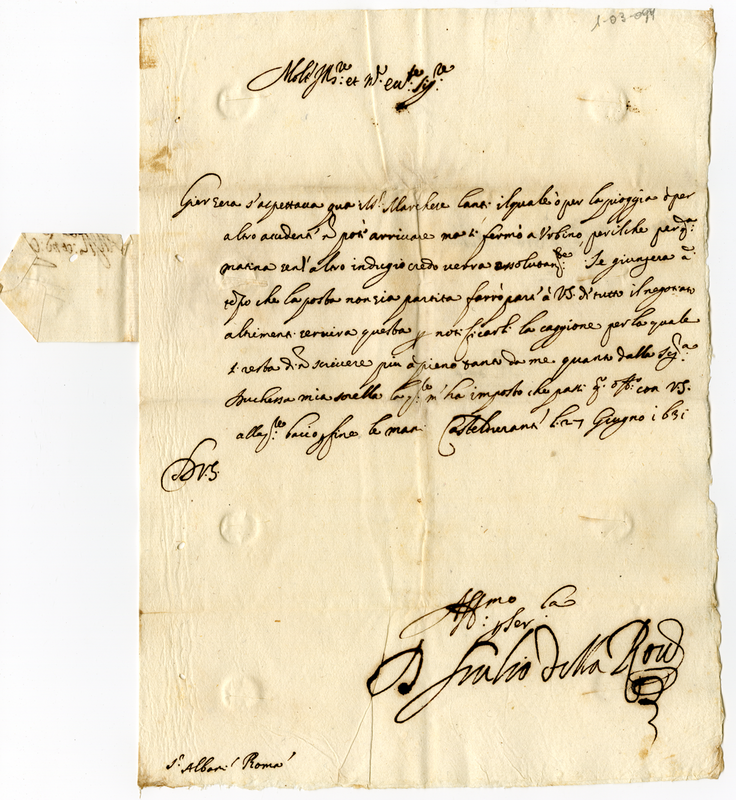 1-03-094
Molt' Ill.re et M.to ecc.te Sig.re
Hier sera s'aspettava qua il S.r Marchese Lanti ilquale ò per la pioggia ò per
altro accidente ñ potè arrivare ma si fermò a Urbino, perilche per q.ta
matina senz'altro indugio credo verrà assolutam.te Se giungerà à
tempo che la posta non sia partita farrò parte à V.S. di tutto il negotiato
altrimenti servirà questa p notificarli la caggione per la quale
si resta di ñ scrivere più a pieno tanto da me quanto dalla Sig.ra
Duchessa mia sorella la q.le m'ha imposto che passi q.to off.o con V.S.
alla q.le bacio p fine le mani Casteldurante li 27 Giugno 1631
Di V.S.
Aff.mo p ser.la
D Giulio della Rov.
S.r Albani Roma